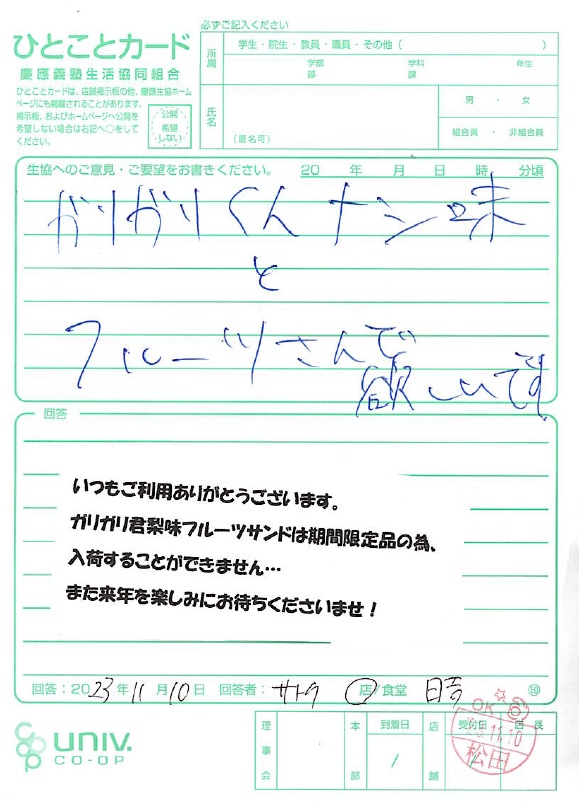 必ずご記入ください
ひとことカード
慶應義塾生活協同組合
ひとことカードは、店舗掲示板の他、慶應生協ホーム
ページにも掲載されることがあります。
掲示板、およびホームページへ公開を
希望しない場合は右記へ○をして
ください。
公開
希望
しない
所属
学生・院生・教員・職員・その他（　）
学部　学科　年生
部　課
氏名
（匿名可）
男・女
組合員・非組合員
生協へのご意見・ご要望をお書きください。　20　年　月　日　時　分頃
がりがりくんナシ味
と
フルーツさんで
欲しいです
回答
いつもご利用ありがとうございます。
ガリガリ君梨味フルーツサンドは期間限定品の為、
入荷することができません…
また来年を楽しみにお待ちくださいませ！
回答：2023年11月10日　回答者：サトウ　店/食堂　日吉　㊞
UNIV.
CO-OP
理事会
本部
到着日
/
店舗
受付日
店長
OK
11.10
松田